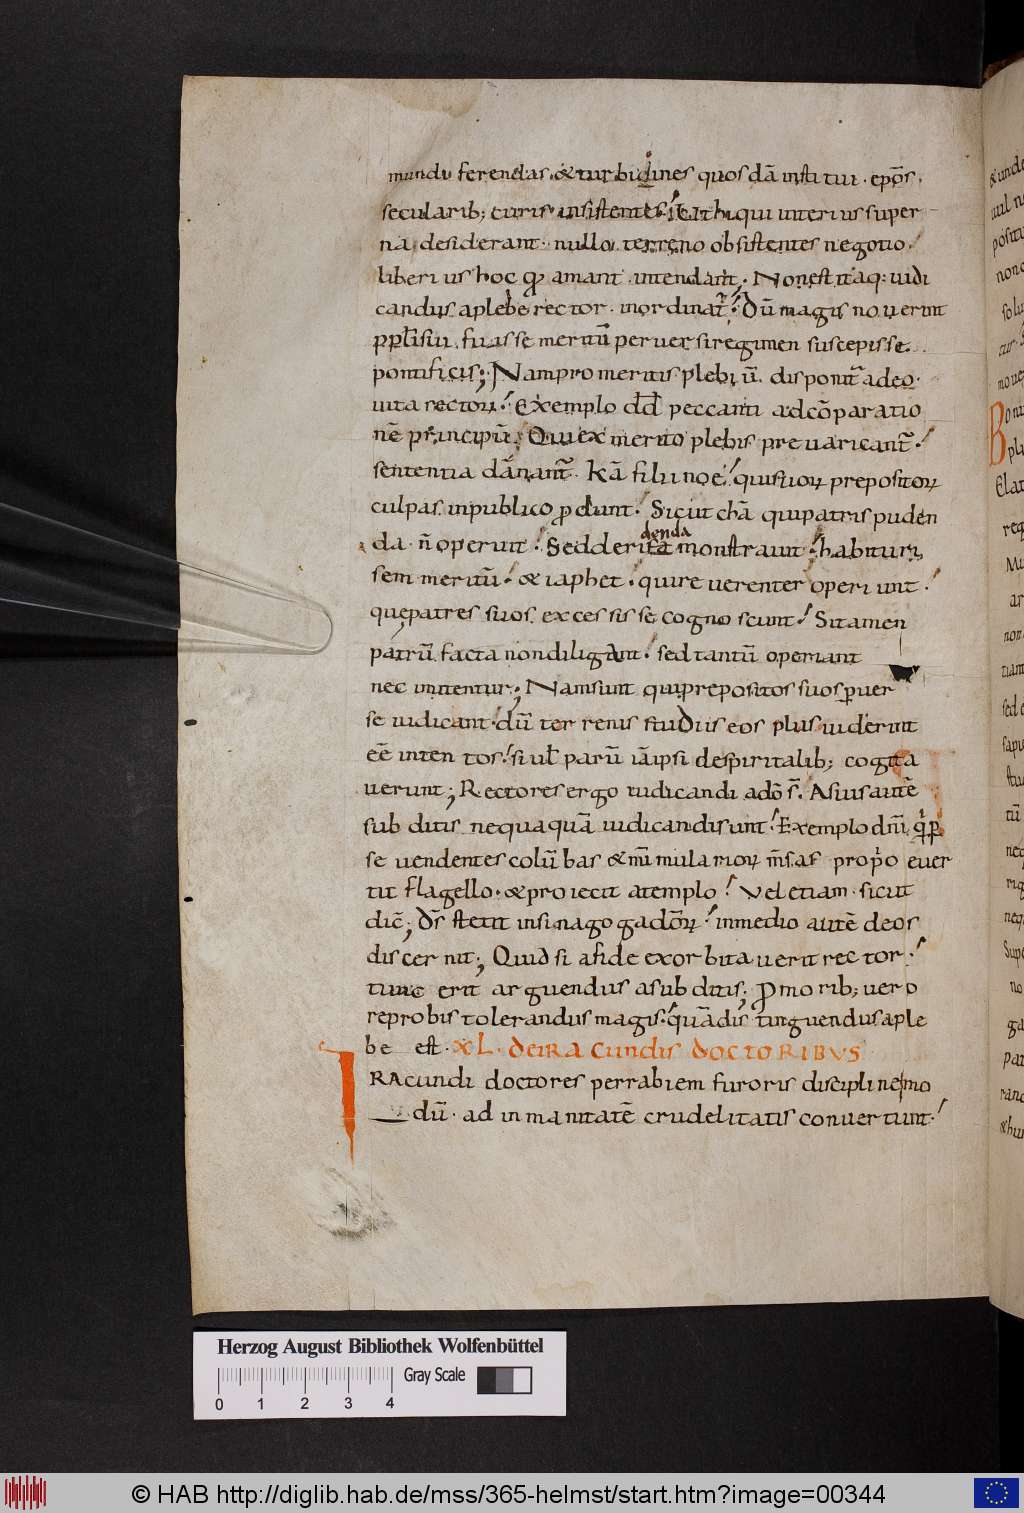 mundu ferendas. & turbidines quos dā instituī. ep̄os.
secularib; curis insistentes. ut hi qui interius super
na. desiderant. nullo. terreno obsistentes negotio.
liberius hoc qđ amant. intendant;. Non est itaq: iudi
candus a plebe rector. inordinat̄. Dū magis nouerint
ppl̄i sui. fuisse meritū peruersi regimen suscepisse.
pontificis;. Nam pro meritis plebiū. disponit̄ a deo.
uita rectorū. Exemplo dd̄ peccanti ad cōparatio
nē principū. Qui ex merito plebis preuaricant̄.
sententia dānant̄. Kā filii noe. qui suoꝝ prepositoꝝ
culpas in publico ꝓdunt. Sicut chā qui patris puden
da. n̄ operuit. Sed deridenda monstrauit. habituri
sem meritū. & iaphet. qui reuerenter operiunt.
que patres suos. excessisse cognoscunt. Si tamen
patrū facta non diligant. sed tantū operiant
nec imitentur; Nam sunt qui prepositos suos ꝑuer
se iudicant. dū terrenis studiis eos plus uiderint
eē intentos. si ul̄ parū iā ipsi de spiritalib; cogita
uerunt; Rectores ergo iudicandi a dō s̄. A suis autē
subditis nequaquā iudicandi sunt. Exemplo dn̄i qi ꝑ
se uendentes colūbas & nūmularioꝝ m̄sas propo euer
tit flagello. & proiecit a templo. Vel etiam. sicut
dic̄; Ds̄ stetit in sinagoga dōꝝ. in medio autē deos
discernit; Quid si a fide exorbitauerit rector.
tunc erit arguendus a subditis; Pro morib; uero
reprobis tolerandus magis. quā distinguendus a ple
be est. XL. DE IRACUNDIS DOCTORIBVS
IRACundi doctores per rabiem furoris discipline mo
dū. ad inmanitatē crudelitatis conuertunt.
Herzog August Bibliothek Wolfenbüttel
Gray Scale
0 1 2 3 4
© HAB http://diglib.hab.de/mss/365-helmst/start.htm?image=00344